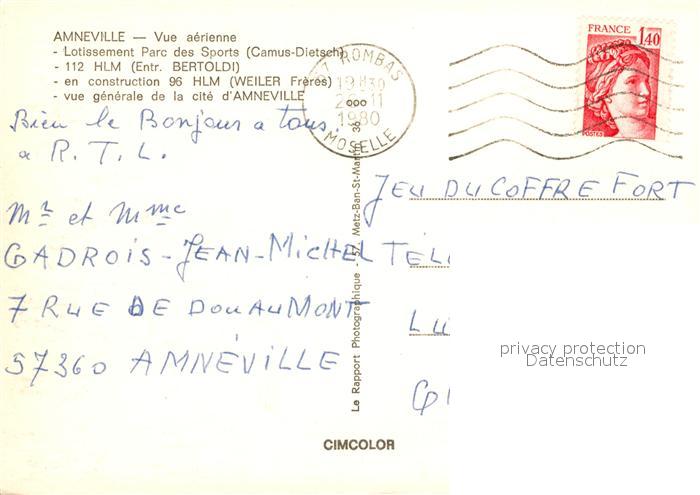 AMNEVILLE — Vue aérienne
- Lotissement Parc des Sports (Camus-Dietsch)
- 112 HLM (Entr. BERTOLDI)
- en construction 96 HLM (WEILER Frères)
- vue générale de la cité d'AMNEVILLE
57 ROMBAS
19H30
11
1980
MOSELLE
FRANCE
1,40
POSTES
Bien le Bonjour a tous.
a R.T.L.
Mr et Mme
GADROIS - JEAN-MICHEL
7 RUE DE DOUAUMONT
57360 AMNÉVILLE
Le Rapport Photographique - 57, Metz-Ban-St-Martin
JEU DU COFFRE FORT
TEL
LU
privacy protection
Datenschutz
CIMCOLOR